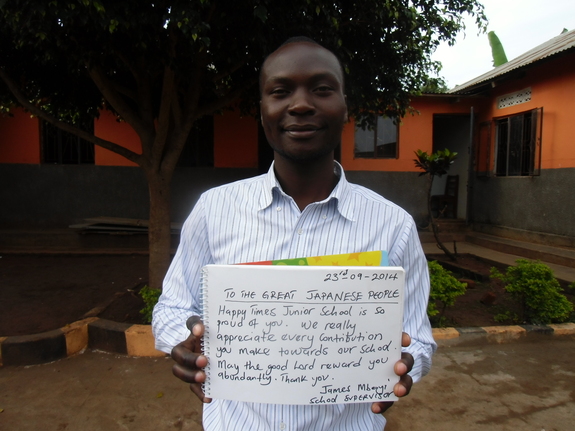 23rd-09-2014
TO THE GREAT JAPANESE PEOPLE
Happy Times Junior School is so
proud of you. We really
appreciate every contribution
you make towards our school.
May the good Lord reward you
abundantly. Thank you.
James Mbonyi
School SUPERVISOR